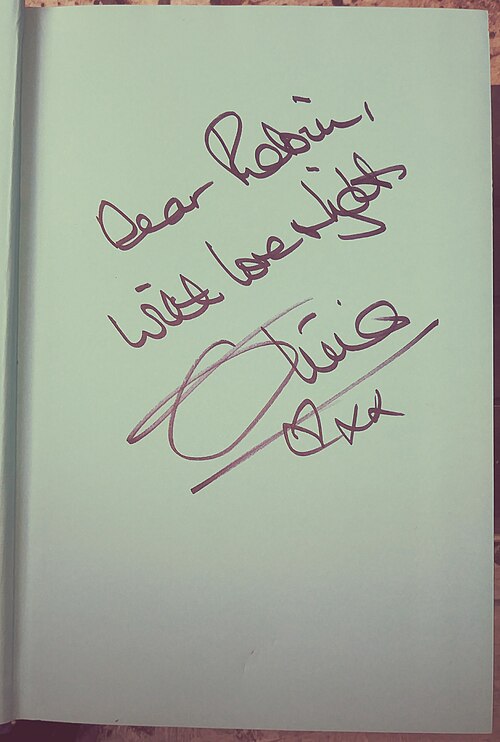 Dear Robin,
with love & light
Olivia
xx